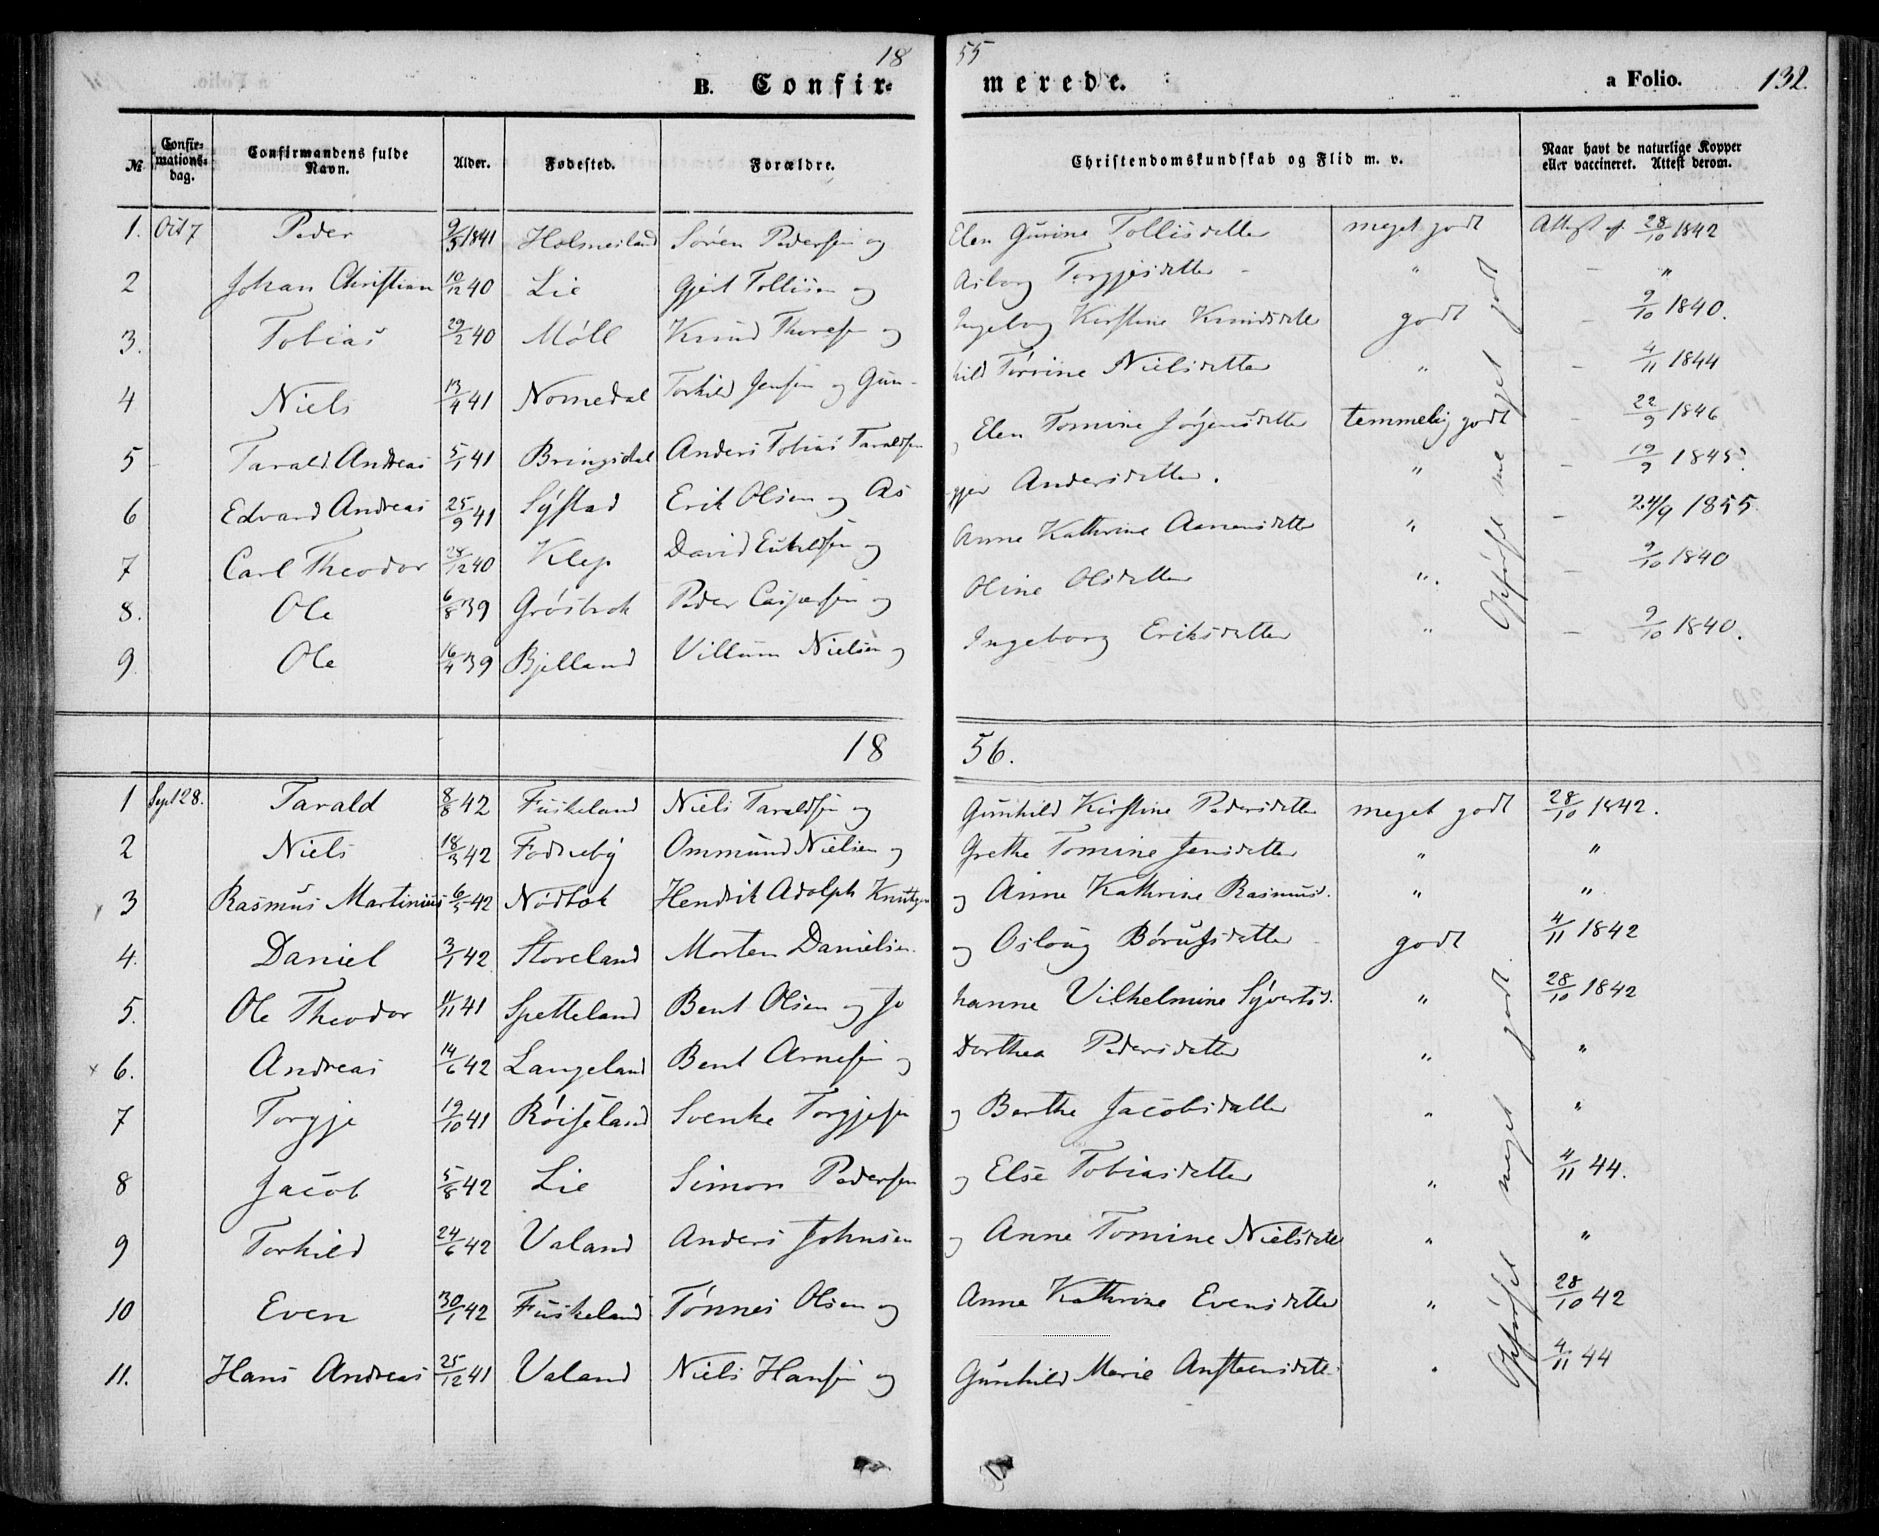 18 55
B. Confir- merede. a Folio. 132.
№ Confirmations-dag. Confirmandens fulde Navn. Alder. Fødested. Forældre. Christendomskundskab og Flid m. v. Naar havt de naturlige Kopper eller vaccineret. Attest derom.
1. Oct 7 Peder 9/5 1841 Sören Pedersen og Elen Gurine Tollisdatter meget godt Attest af 28/10 1842
2 Johan Christian 10/12 40 Lie Gjert Tollisen og Asborg Torgjesdatter " – "
3. Tobias 29/2 40 Möll Knud Thoresen og Ingeborg Kirstine Knudsdatter godt – 9/10 1840.
4 Niels 13/4 41 Nomedal Torkild Jensen og Gun- hild Törrine Nielsdatter " – 4/11 1844
5 Tarald Andreas 5/1 41 Bringsdal Anders Tobias Taraldsen, Elen Tomine Jörgensdatter temmelig godt – 22/9 1846
6 Edvard Andreas 25/9 41 Systad Erik Olsen og As gjer Andersdatter. " – 19/9 1845.
7 Carl Theodor 28/12 40 Klep David Eukeldsen og Anne Kathrine Aanensdatter " – 24/9 1855.
8. Ole 6/8 39 Gröstvok Peder Caspersen og Oline Olsdatter " – 9/10 1840
9. Ole 16/4 39 Bjelland Villum Nielsen og Ingeborg Eriksdatter " – 9/10 1840.
Opförsel meget godt
18 56.
1 Sept 28. Tarald 8/8 42 Fuskeland Niels Taraldsen og Gunhild Kirstine Pedersdatter meget godt 28/10 1842.
2 Niels 18/3 42 Fodneby Ommund Nielsen og Grethe Tomine Jensdatter " "
3 Rasmus Martinius 6/5 42 Nödtok Hendrik Adolph Knutzen og Anne Kathrine Rasmusd. " "
4. Daniel 3/1 42 Storeland Morten Danielsen og Osloug Börufsdatter godt 4/11 1842
5. Ole Theodor 11/11 41 Spetteland Bent Olsen og Jo hanne Vilhelmine Syvertsd. " 28/10 1842
6. Andreas 14/6 42 Langeland Bent Arnesen og Dorthea Pedersdatter " "
7 Torgje 19/10 41 Röiseland Svenke Torgjesen og Berthe Jacobsdatter " "
8 Jacob 5/8 42 Lie Simon Pedersen og Else Tobiasdatter " 4/11 44.
9 Torkild 24/6 42 Valand Anders Johnsen og Anne Tomine Nielsdatter " "
10 Even 30/1 42 Fuskeland Tönnes Olsen og Anne Kathrine Evensdatter " 28/10 42
11. Hans Andreas 25/12 41 Valand Niels Hansen og Gunhild Marie Anstensdatter " 4/11 44
Opförsel meget godt